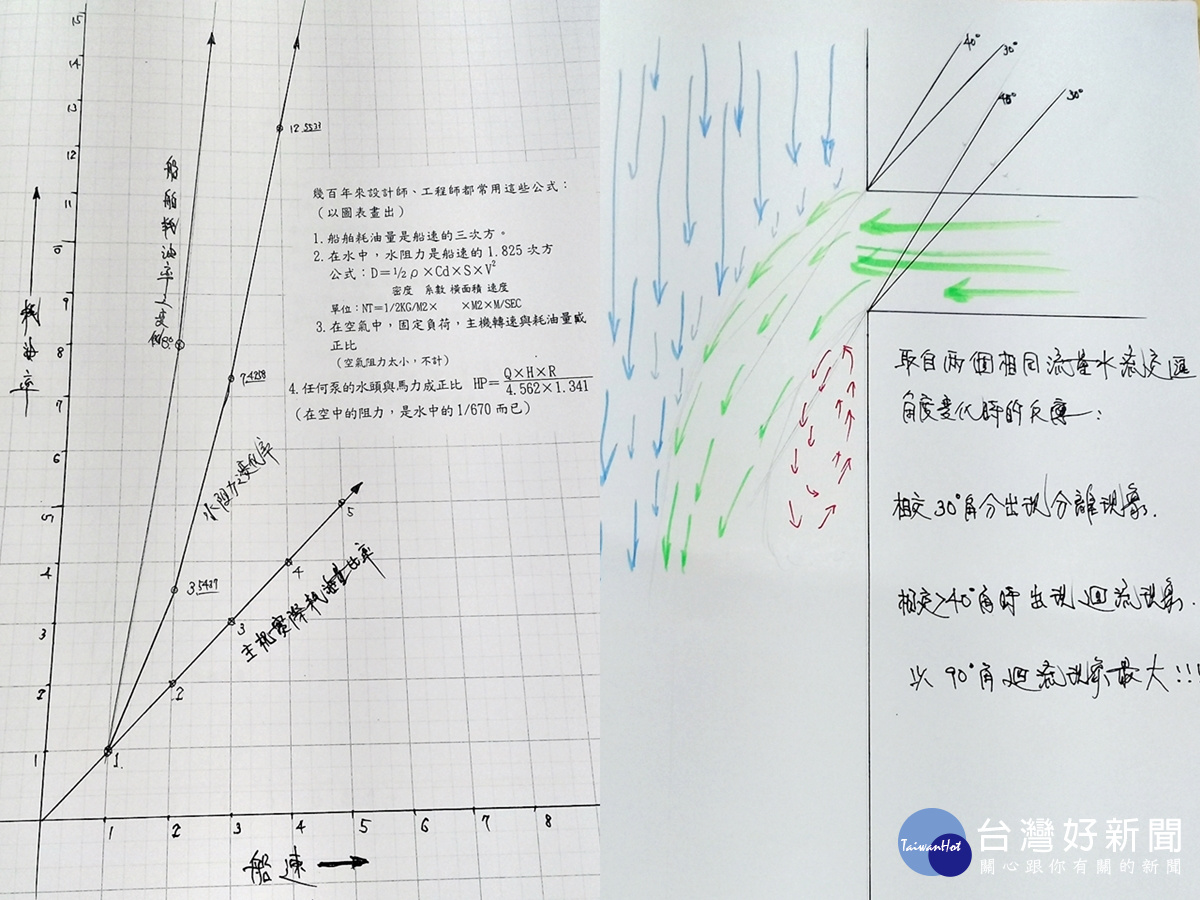 15
14
13
12
11
10
9
8
7
6
5
4
3
2
1
耗油率
船舶耗油率之變化
8.0
12.5533
7.4258
3.5437
水阻力之變化率
主机實際耗油量比率
1.
2
3
4
5
1 2 3 4 5 6 7 8
船速
幾百年來設計師、工程師都常用這些公式：
（以圖表畫出）
1. 船舶耗油量是船速的三次方。
2. 在水中，水阻力是船速的 1.825 次方
公式：D＝½ρ×Cd×S×V²
密度 係數 橫面積 速度
單位：NT＝1/2KG/M2× ×M2×M/SEC
3. 在空氣中，固定負荷，主機轉速與耗油量成
正比
（空氣阻力太小，不計）
4. 任何泵的水頭與馬力成正比 HP＝Q×H×R/4.562×1.341
（在空中的阻力，是水中的 1/670 而已）
40° 30°
40° 30°
取自兩個相同流量水流交匯
角度變化時的反應：
相交30°角分出現分離現象.
相交>40°角時出現迴流現象.
以90°角迴流現象最大!!!
台灣好新聞
TaiwanHot
關心跟你有關的新聞